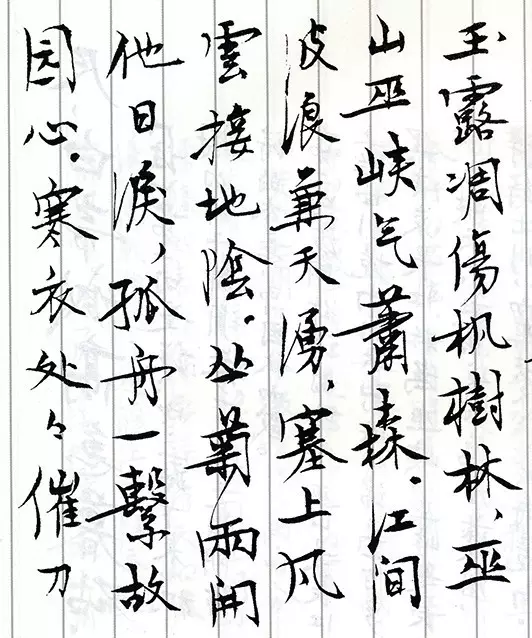 玉露凋傷枫樹林、巫
山巫峡气蕭森。江间
波浪兼天湧,塞上风
雲接地陰。丛菊兩開
他日淚,孤舟一繫故
园心。寒衣处々催刀